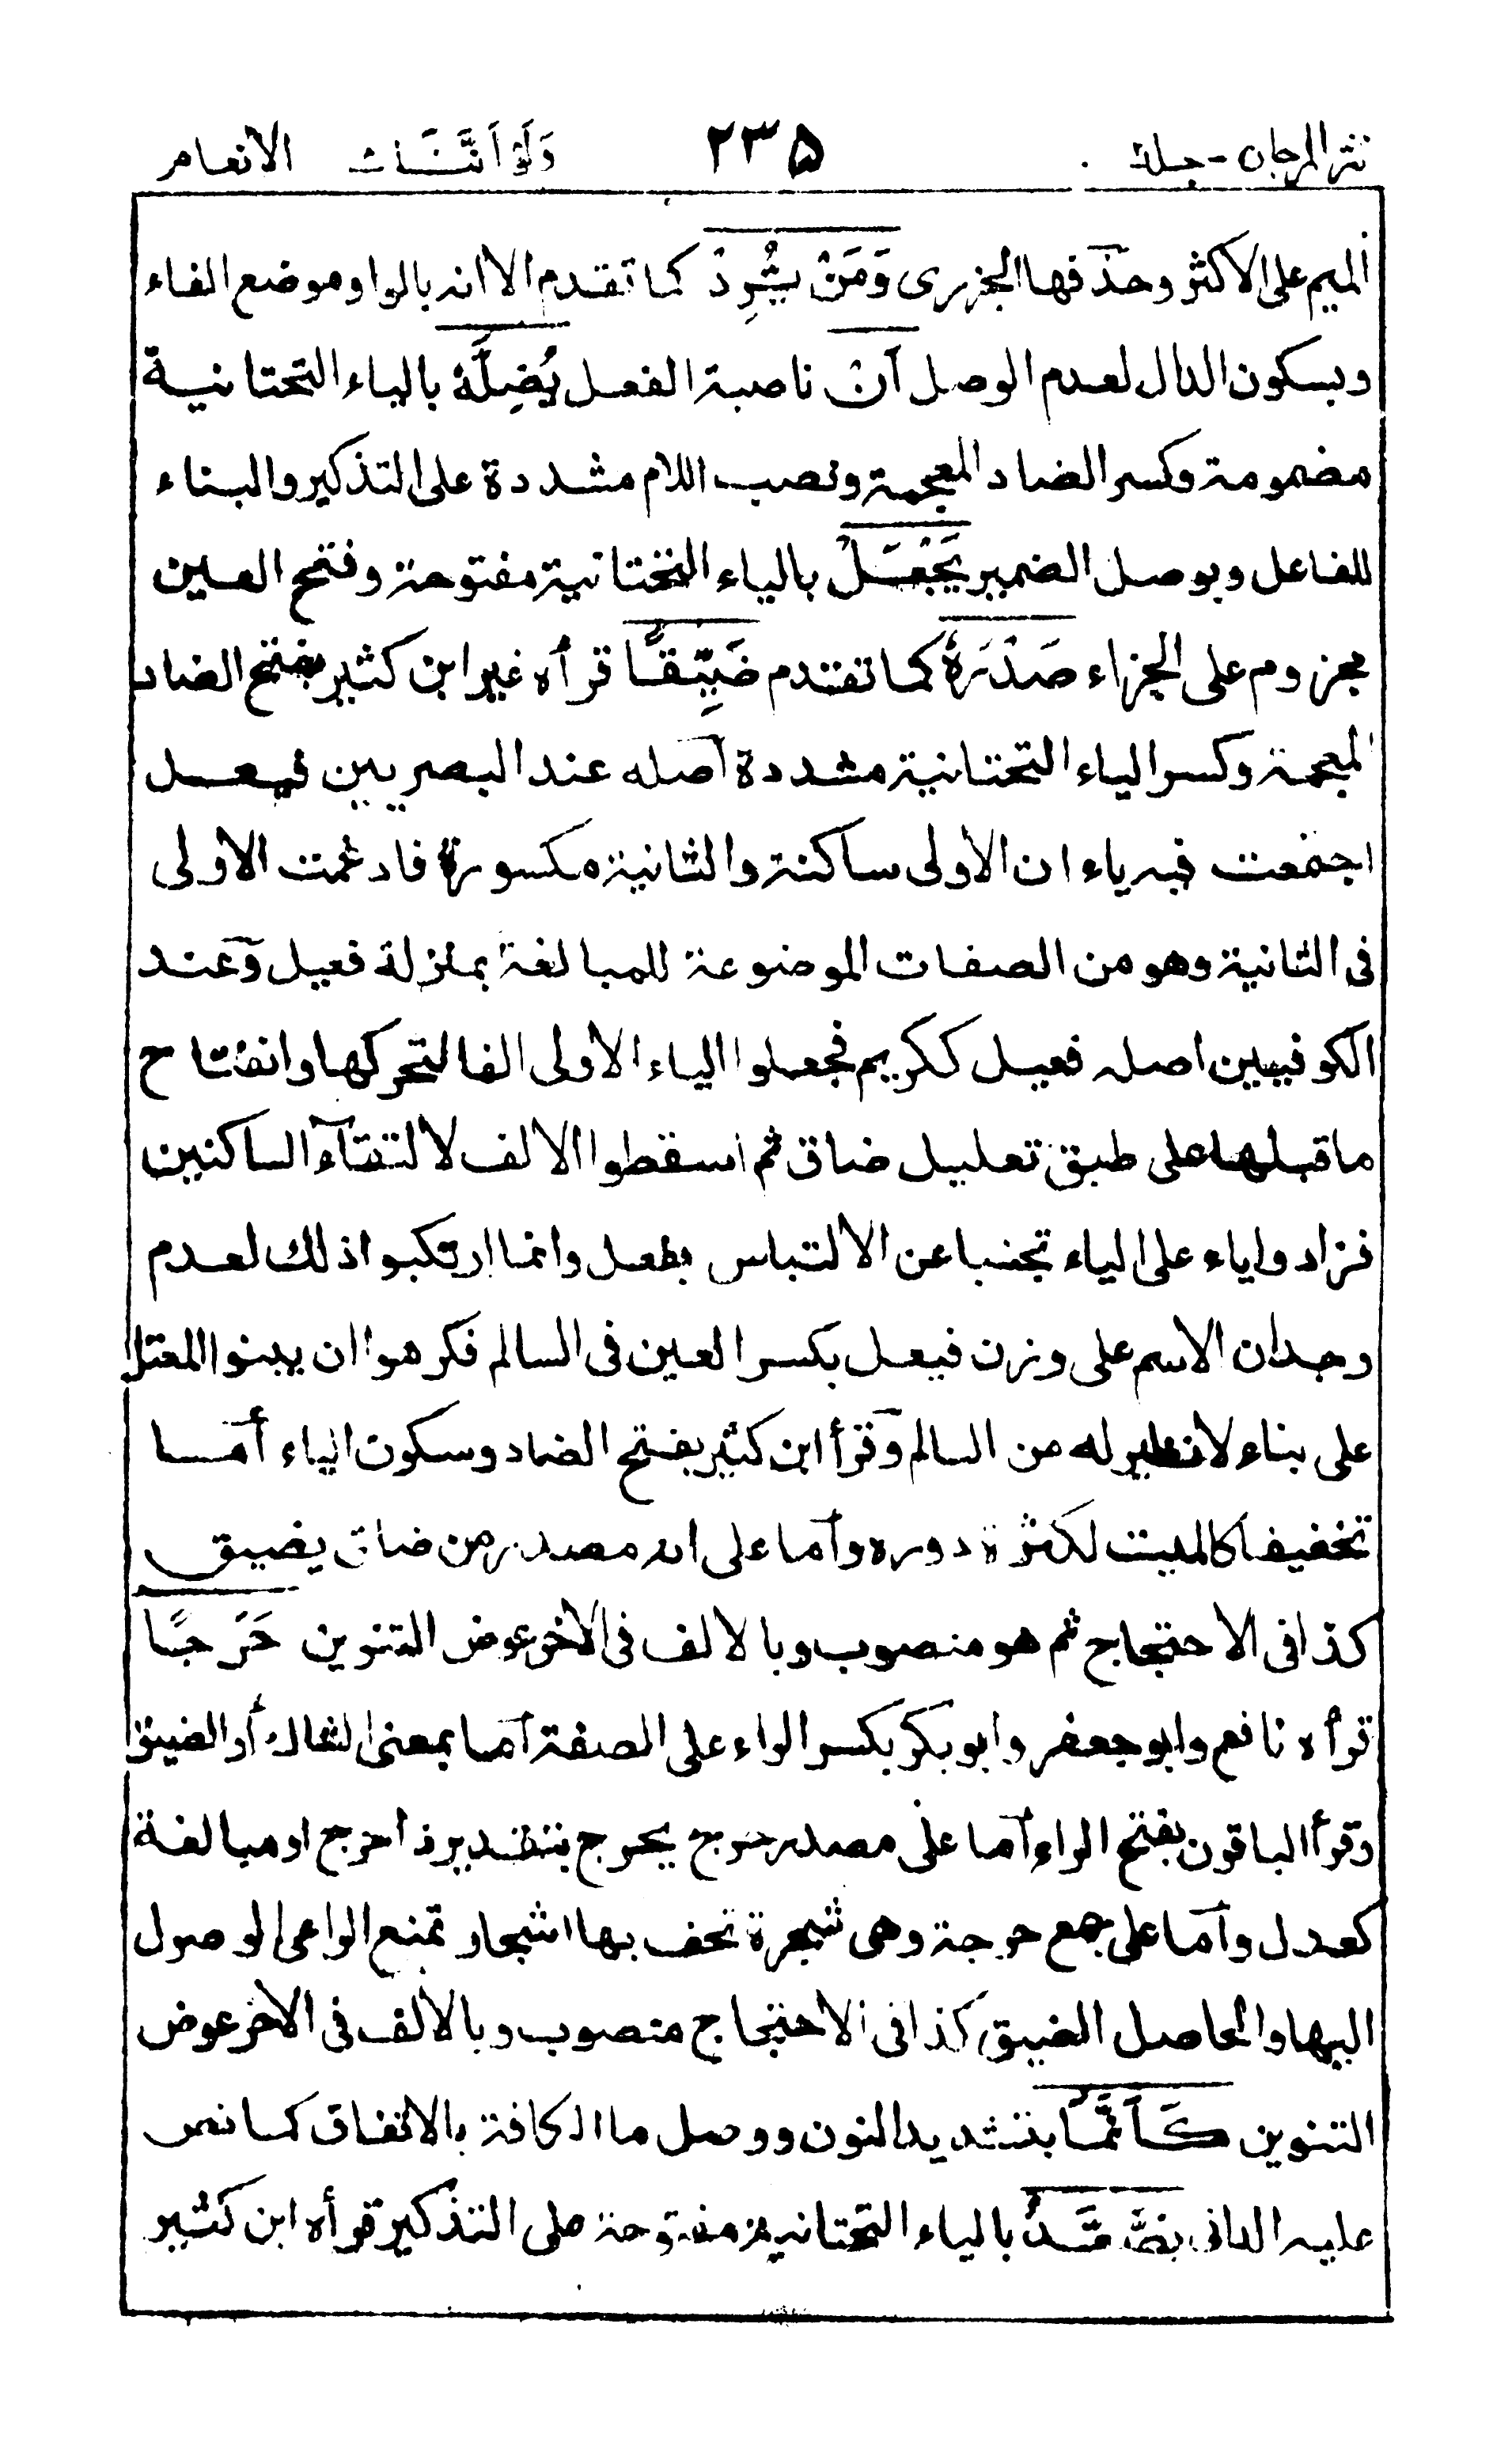 نثر المرجان - جلد ٢٣٥ وَلَوْ اَنَّنَا الانعام
الميم على الاكثر وحذفها الجزرى وَمَنْ يُّرِدْ كما تقدم الا انه بالواو موضع الفاء
وبسكون الدال لعدم الوصل اَنْ ناصبة الفعل يُضِلَّهٗ بالياء التحتانية
مضمومة وكسر الضاد المعجمة ونصب اللام مشددة على التذكير والبناء
للفاعل وبوصل الضمير يَجْعَلْ بالياء التحتانية مفتوحة وفتح العين
مجزوم على الجزاء صَدْرَهٗ كما تقدم ضَيِّقًا قرأه غير ابن كثير بفتح الضاد
المعجمة وكسر الياء التحتانية مشددة اصله عند البصريين فيعل
اجتمعت فيه ياء ان الاولى ساكنة والثانية مكسورة فادغمت الاولى
فى الثانية وهو من الصفات الموضوعة للمبالغة بمنزلة فعيل وعند
الكوفيين اصله فعيل ككريم فجعلوا الياء الاولى الفا لتحركها وانفتاح
ما قبلها على طبق تعليل ضاق ثم اسقطوا الالف لالتقاء الساكنين
فزادوا ياء على الياء تجنبا عن الالتباس بفعل وانما ارتكبوا ذلك لعدم
وجدان الاسم على وزن فيعل بكسر العين فى السالم فكرهوا ان يبنوا المعتل
على بناء لا نظير له من السالم وقرأ ابن كثير بفتح الضاد وسكون الياء أما
تخفيفا كالميت لكثرة دوره وآما على انه مصدر من ضاق يضيق
كذا فى الاحتجاج ثم هو منصوب وبالالف فى الاخر عوض التنوين حَرَجًا
قرأه نافع وابو جعفر وابو بكر بكسر الراء على الصفة آما بمعنى الشاك أو الضيق
وقرأ الباقون بفتح الراء آما على مصدر حرج يحرج بتقدير ذا حرج او مبالغة
كعدل وآما على جمع حرجة وهى شجرة تحف بها اشجار تمنع الراعى الوصول
اليها والحاصل الضيق كذا فى الاحتجاج منصوب وبالالف فى الاخر عوض
التنوين كَاَنَّمَا بتشديد النون ووصل ما الكافة بالاتفاق كما نص
عليه الدانى يَصَّعَّدُ بالياء التحتانية مفتوحة على التذكير قرأه ابن كثير